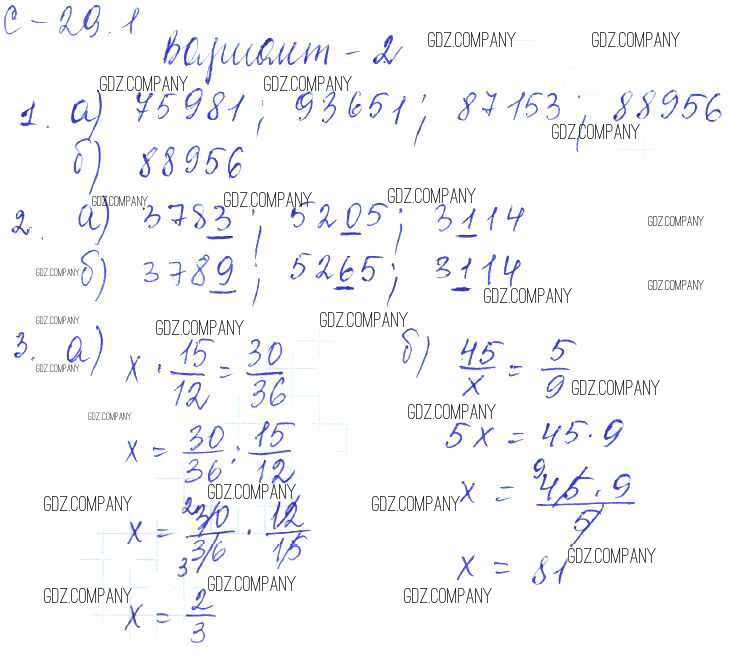 С-29.1
Вариант-2
GDZ.COMPANY GDZ.COMPANY
GDZ.COMPANY GDZ.COMPANY
1. а) 75981; 93651; 87153; 88956
GDZ.COMPANY
б) 88956
GDZ.COMPANY GDZ.COMPANY GDZ.COMPANY
2. а) 3783; 5205; 3114
GDZ.COMPANY
б) 3789; 5265; 3114
GDZ.COMPANY GDZ.COMPANY GDZ.COMPANY
GDZ.COMPANY GDZ.COMPANY GDZ.COMPANY
3. а) x · 15/12 = 30/36
б) 45/x = 5/9
GDZ.COMPANY GDZ.COMPANY
GDZ.COMPANY GDZ.COMPANY
x = 30/36 : 15/12
5x = 45·9
GDZ.COMPANY GDZ.COMPANY GDZ.COMPANY
x = 30/36 · 12/15
2
3
x = 45·9/5
9
GDZ.COMPANY GDZ.COMPANY
x = 2/3
x = 81
GDZ.COMPANY GDZ.COMPANY